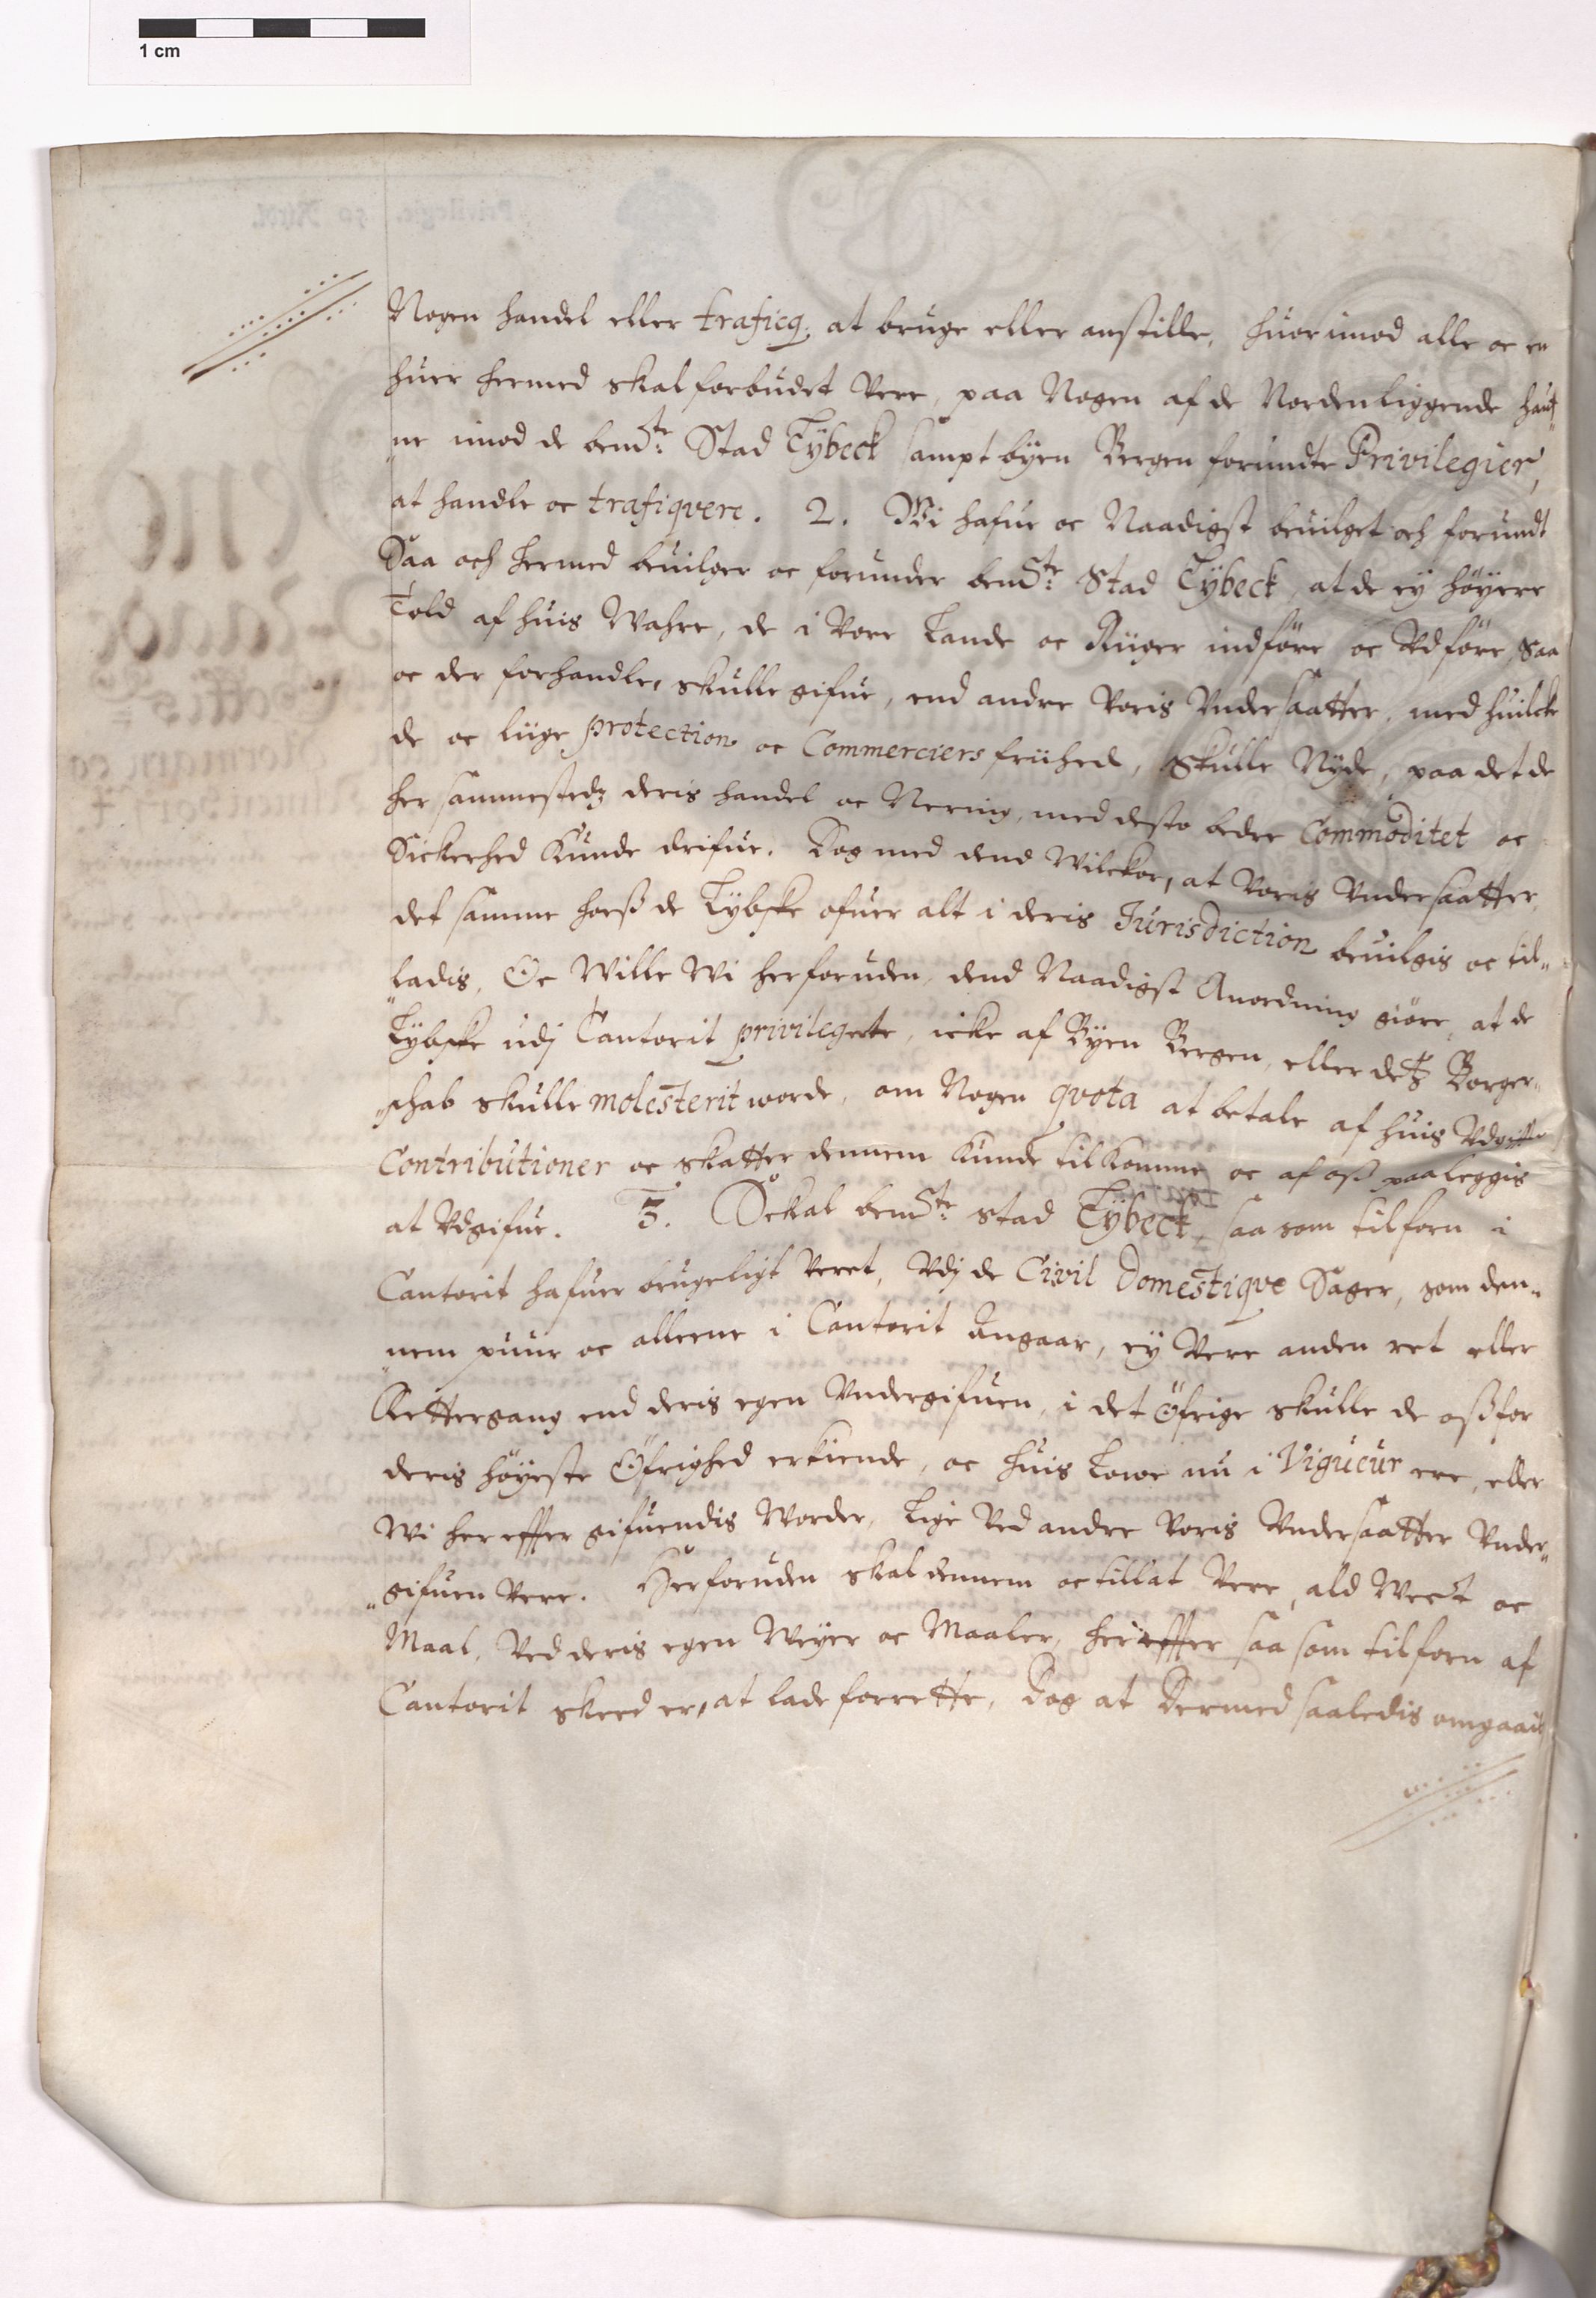 1 cm
Nogen handel eller traficq. at bruge eller anstille, huorimod alle oc en
huer hermed skal forbudet Vere, paa Nogen af de Nordenliggende hauf„
„ne imod de bemte: Stad Lÿbeck sampt bÿen Bergen forundte Privilegier,
at handle oc trafiqvere. 2. Wi hafue oc Naadigst beuilget och forundt
Saa och hermed beuilger oc forunder bemte: Stad Lÿbeck, at de eÿ höÿere
Told af huis Wahre, de i Vore Lande oc Rüger indföre oc Vdföre, saa
oc der forhandle, skulle gifue, end andre Voris Vndersaatter, med huilcke
de oc liige protection oc Commerciers friihed, skulle Nÿde, paa det de
her sammestedz deris handel oc Nering, med desto bedre Commoditet oc
Sickerhed Kunde drifue. Dog med dend Wilckor, at Voris Vndersaatter,
det samme hoesz de Lÿbske ofuer alt i deris Jurisdiction beuilgis oc til„
„ladis. Oc Wille Wi herforuden, dend Naadigst Anordning giöre, at de
Lÿbske udj Cantorit privilegerte, icke af Bÿen Bergen, eller detz Borger„
„schab skulle molesterit worde, om Nogen qvota at betale af huis Vdgifter
Contributioner oc skatter dennem Kunde tilkomme, oc af osz paaleggis
at Vdgifue. 3. Skal bemte: stad Lÿbeck, saa som tilforn i
Cantorit hafuer brugeligt Veret, Vdj de Civil Domestiqve Sager, som den„
„nem puur oc alleene i Cantorit Angaar, eÿ Vere anden ret eller
Rettergang end deris egen Vndergifuen, i det Öfrige skulle de osz for
deris höÿeste Öfrighed erkiende, oc huis Lowe nu i Vigueur ere, eller
Wi herefter gifuendis Worder, Lige Ved andre Voris Vndersaatter Vnder„
„gifuen Vere. Herforuden skal dennem oc tillat Vere, ald Wect oc
Maal, Ved deris egen Weÿer oc Maaler, herefter saa som tilforn af
Cantorit skeed er, at lade forrette, Dog at Dermed saaledis omgaais